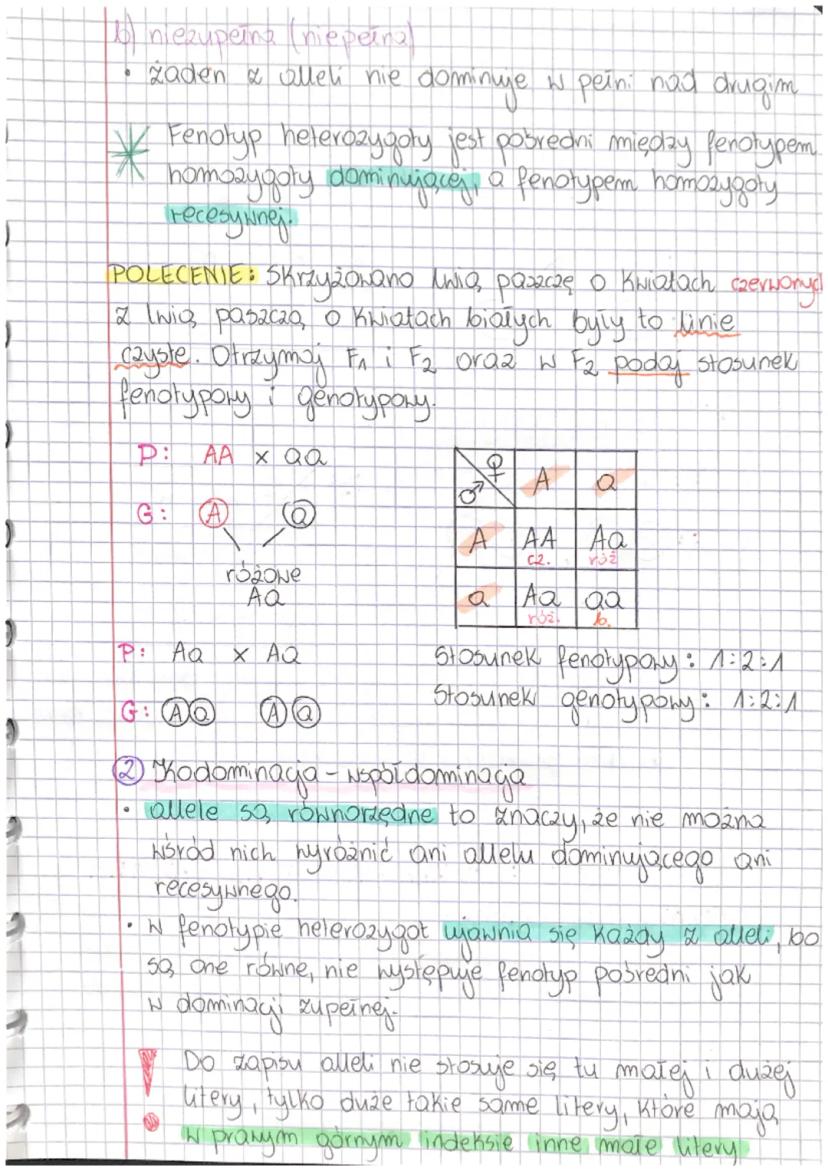 b) niezupełna (niepełna)
• żaden z alleli nie dominuje w pełni nad drugim
Fenotyp heterozygoty jest pośredni między fenotypem
homozygoty dominującej, a fenotypem homozygoty
recesywnej.
POLECENIE: Skrzyżowano lwią paszczę o kwiatach czerwonych
z lwią paszczą o kwiatach białych były to linie
czyste. Otrzymaj F1 i F2 oraz w F2 podaj stosunek
fenotypowy i genotypowy.
P: AA x aa
G: A a
różowe
Aa
♀ ♂ A a
A AA Aa
cz. róż
a Aa aa
róż. b.
P: Aa x Aa
G: A a A a
Stosunek fenotypowy: 1:2:1
Stosunek genotypowy: 1:2:1
2 Kodominacja - współdominacja
• allele są równorzędne to znaczy, że nie można
wśród nich wyróżnić ani allelu dominującego ani
recesywnego.
• w fenotypie heterozygot ujawnia się każdy z alleli, bo
są one równe, nie występuje fenotyp pośredni jak
w dominacji zupełnej.
! Do zapisu alleli nie stosuje się tu małej i dużej
litery, tylko duże takie same litery, które mają
w prawym górnym indeksie inne małe litery